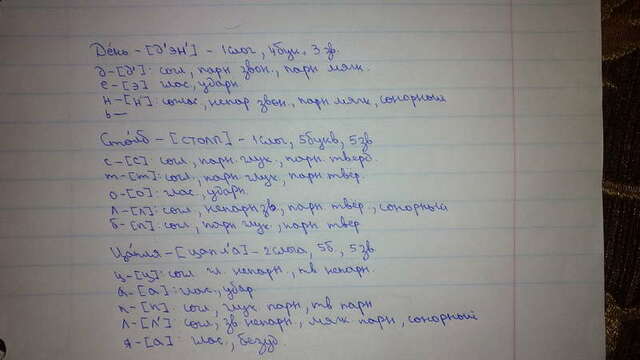 Де́нь – [д'эн'] – 1 слог, 4 бук. 3 зв.
д – [д']: согл, парн звон., парн мягк.
е – [э] глас, ударн
н – [н']: соглас, непар звон., парн мягк, сонорный
ь —
Сто́лб – [столп] – 1 слог, 5 букв, 5 зв
с – [с] согл, парн. глух., парн. тверд.
т – [т]: согл., парн глух, парн твер.
о – [о]: глас., ударн.
л – [л]: согл, непарн зв., парн. твер., сонорный
б – [п]: согл., парн глух, парн твер
Ца́пля – [цапл'а] – 2 слога, 5 б, 5 зв
ц – [ц]: согл. гл. непарн., тв непарн.
а – [а]: глас., удар
п – [п]: согл, глух парн, тв парн
л – [л'] согл, зв. непарн., мягк парн, сонорный
я – [а]: глас., безуд.